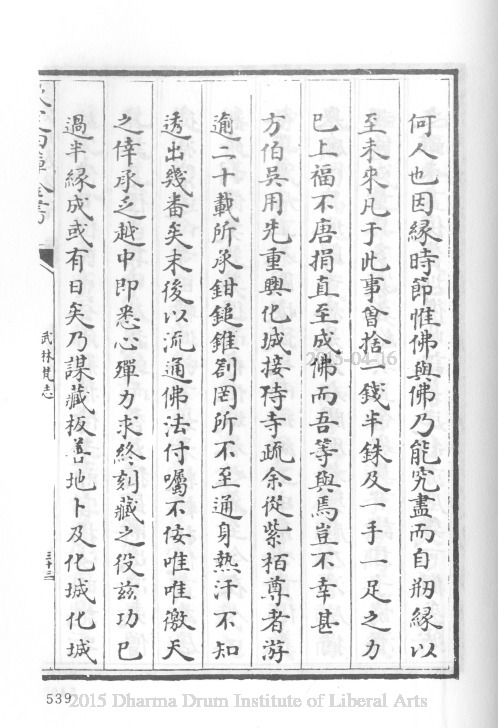 何人也因緣時節惟佛與佛乃能究盡而自刱緣以
至未來凡于此事曾捨一錢半銖及一手一足之力
已上福不唐捐直至成佛而吾等與焉豈不幸甚
方伯吳用先重興化城接待寺疏余從紫栢尊者游
逾二十載所承鉗鎚錐劄罔所不至通身熱汗不知
透出幾番矣末後以流通佛法付囑不佞唯唯徼天
之倖承乏越中即悉心殫力求終刻藏之役兹功已
過半緣成或有日矣乃謀藏板善地卜及化城化城
武林梵志
三十三
539
2015 Dharma Drum Institute of Liberal Arts